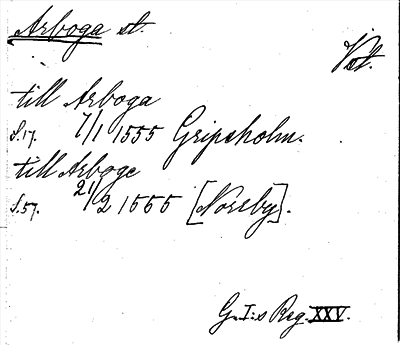 Arboga st.
Vst.
till Arboga
s.17. 7/1 1555 Gripsholm.
till Arboge
s.57. 21/2 1555 [Noreby].
G.I:s Reg. XXV.